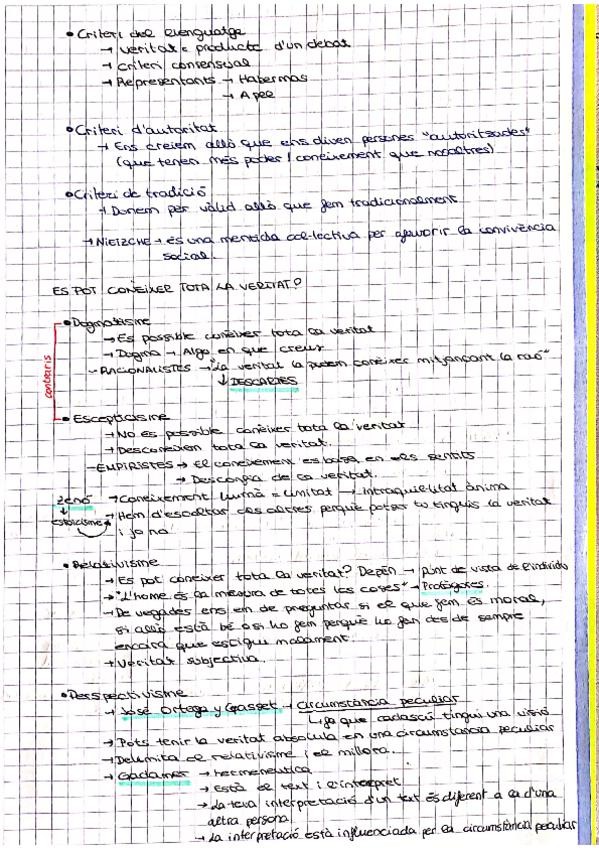 • Criteri del llenguatge
→ Veritat = producte d'un debat
→ Criteri consensual
→ Representants → Habermas
→ Apel
• Criteri d'autoritat
→ Ens creiem allò que ens diuen persones "autoritzades"
(que tenen més poder / coneixement que nosaltres)
• Criteri de tradició
→ Donem per vàlid allò que fem tradicionalment
→ NIETZCHE → és una mentida col·lectiva per afavorir la convivència
social.
ES POT CONÈIXER TOTA LA VERITAT?
• Dogmatisme
→ És possible conèixer tota la veritat
→ Dogma → Algo en que creus
- RACIONALISTES → "La veritat la podem conèixer mitjançant la raó"
↓ DESCARTES
contraris
• Escepticisme
→ No és possible conèixer tota la veritat
→ Desconeixen tota la veritat.
- EMPIRISTES → el coneixement es basa en els sentits
→ Desconfia de la veritat.
Zenó → Coneixement humà = limitat → intranquil·litat ànima
↓
estoicisme → Hem d'escoltar els altres perquè potser tu tinguis la veritat
i jo no.
• Relativisme
→ Es pot conèixer tota la veritat? Depèn → punt de vista de l'individu
→ "L'home és la mesura de totes les coses" → Protàgores.
→ De vegades ens em de preguntar si el que fem és moral,
si allò està bé o si ho fem perquè ho fan des de sempre
encara que estigui malament.
→ Veritat subjectiva.
• Perspectivisme
→ José Ortega y Gasset → circumstància peculiar
↳ ja que cadascú tingui una visió
→ Pots tenir la veritat absoluta en una circumstància peculiar
→ Delimita el relativisme i el millora.
→ Gadamer → hermenèutica
→ Està el text i l'intèrpret
→ La teva interpretació d'un text és diferent a la d'una
altra persona
→ La interpretació està influenciada per la circumstància peculiar